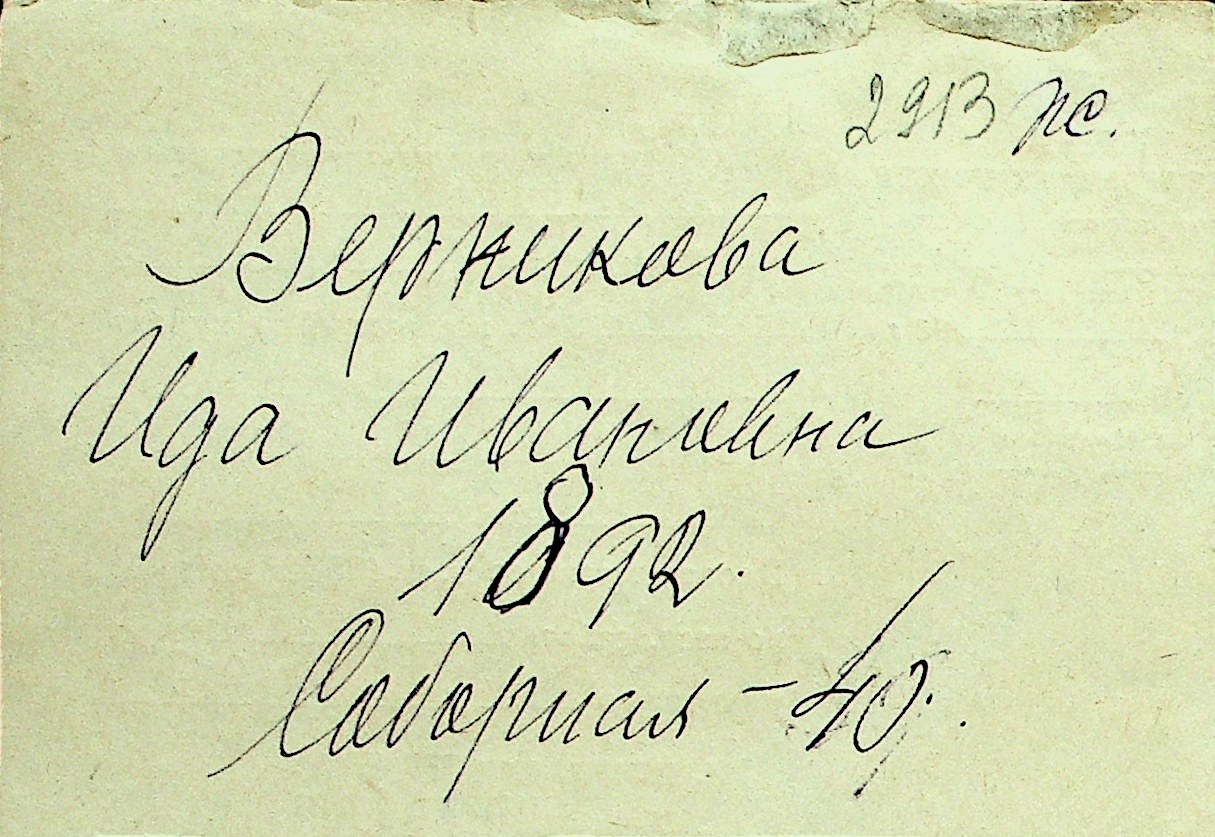 2913 пс.
Верникова
Ида Ивановна
1892.
Соборная - 40.